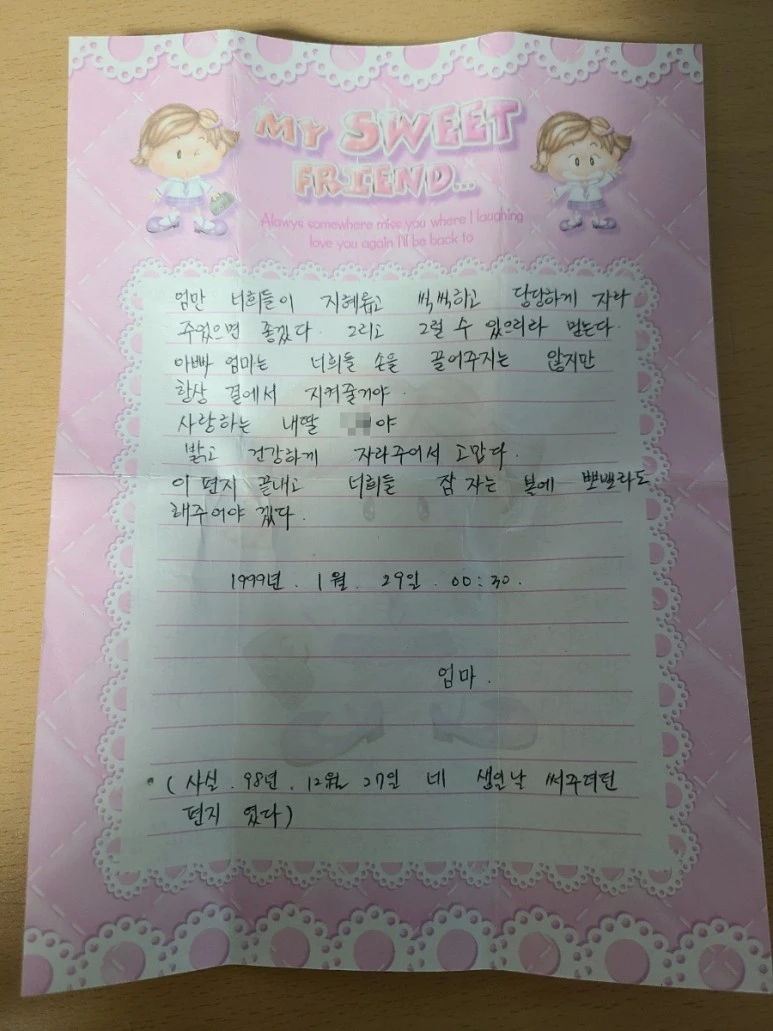 MY SWEET
FRIEND...
Always somewhere miss you where I laughing
love you again I'll be back to
엄만 너희들이 지혜롭고 씩씩하고 당당하게 자라
주었으면 좋겠다. 그리고 그럴 수 있으리라 믿는다.
아빠 엄마는 너희들 손을 끌어주지는 않지만
항상 곁에서 지켜줄거야.
사랑하는 내딸 야
밝고 건강하게 자라주어서 고맙다.
이 편지 끝내고 너희들 잠 자는 볼에 뽀뽀라도
해주어야 겠다.
1999년. 1월. 29일. 00:30.
엄마.
(사실. 98년. 12월 27일 네 생일날 써주려던
편지 였다)